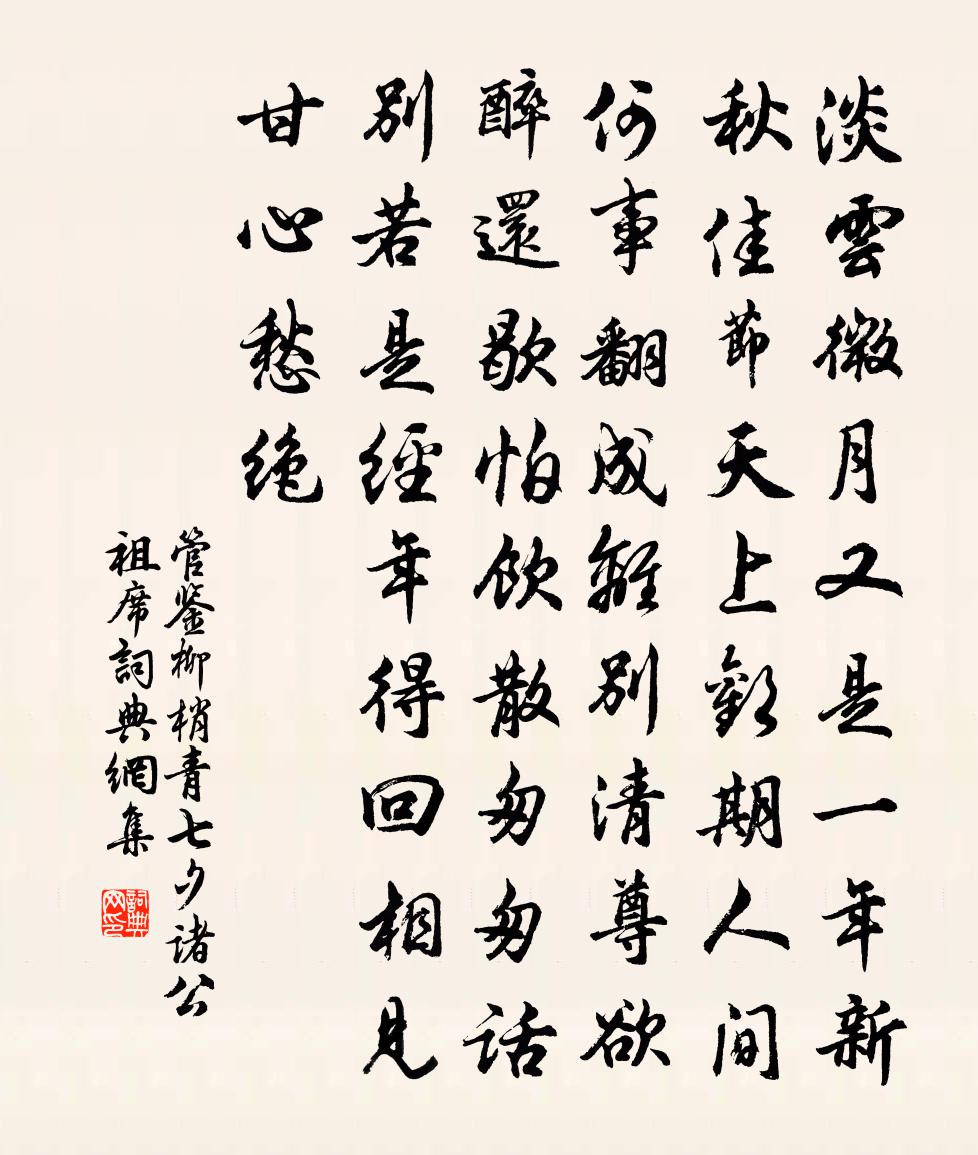 淡雲微月又是一年新
秋佳節天上歡期人間
何事翻成離別清尊欲
醉還歇怕飲散匆匆話
別若是經年得回相見
甘心愁絶
管鉴柳梢青七夕諸公
祖席詞典網集
詞典网印